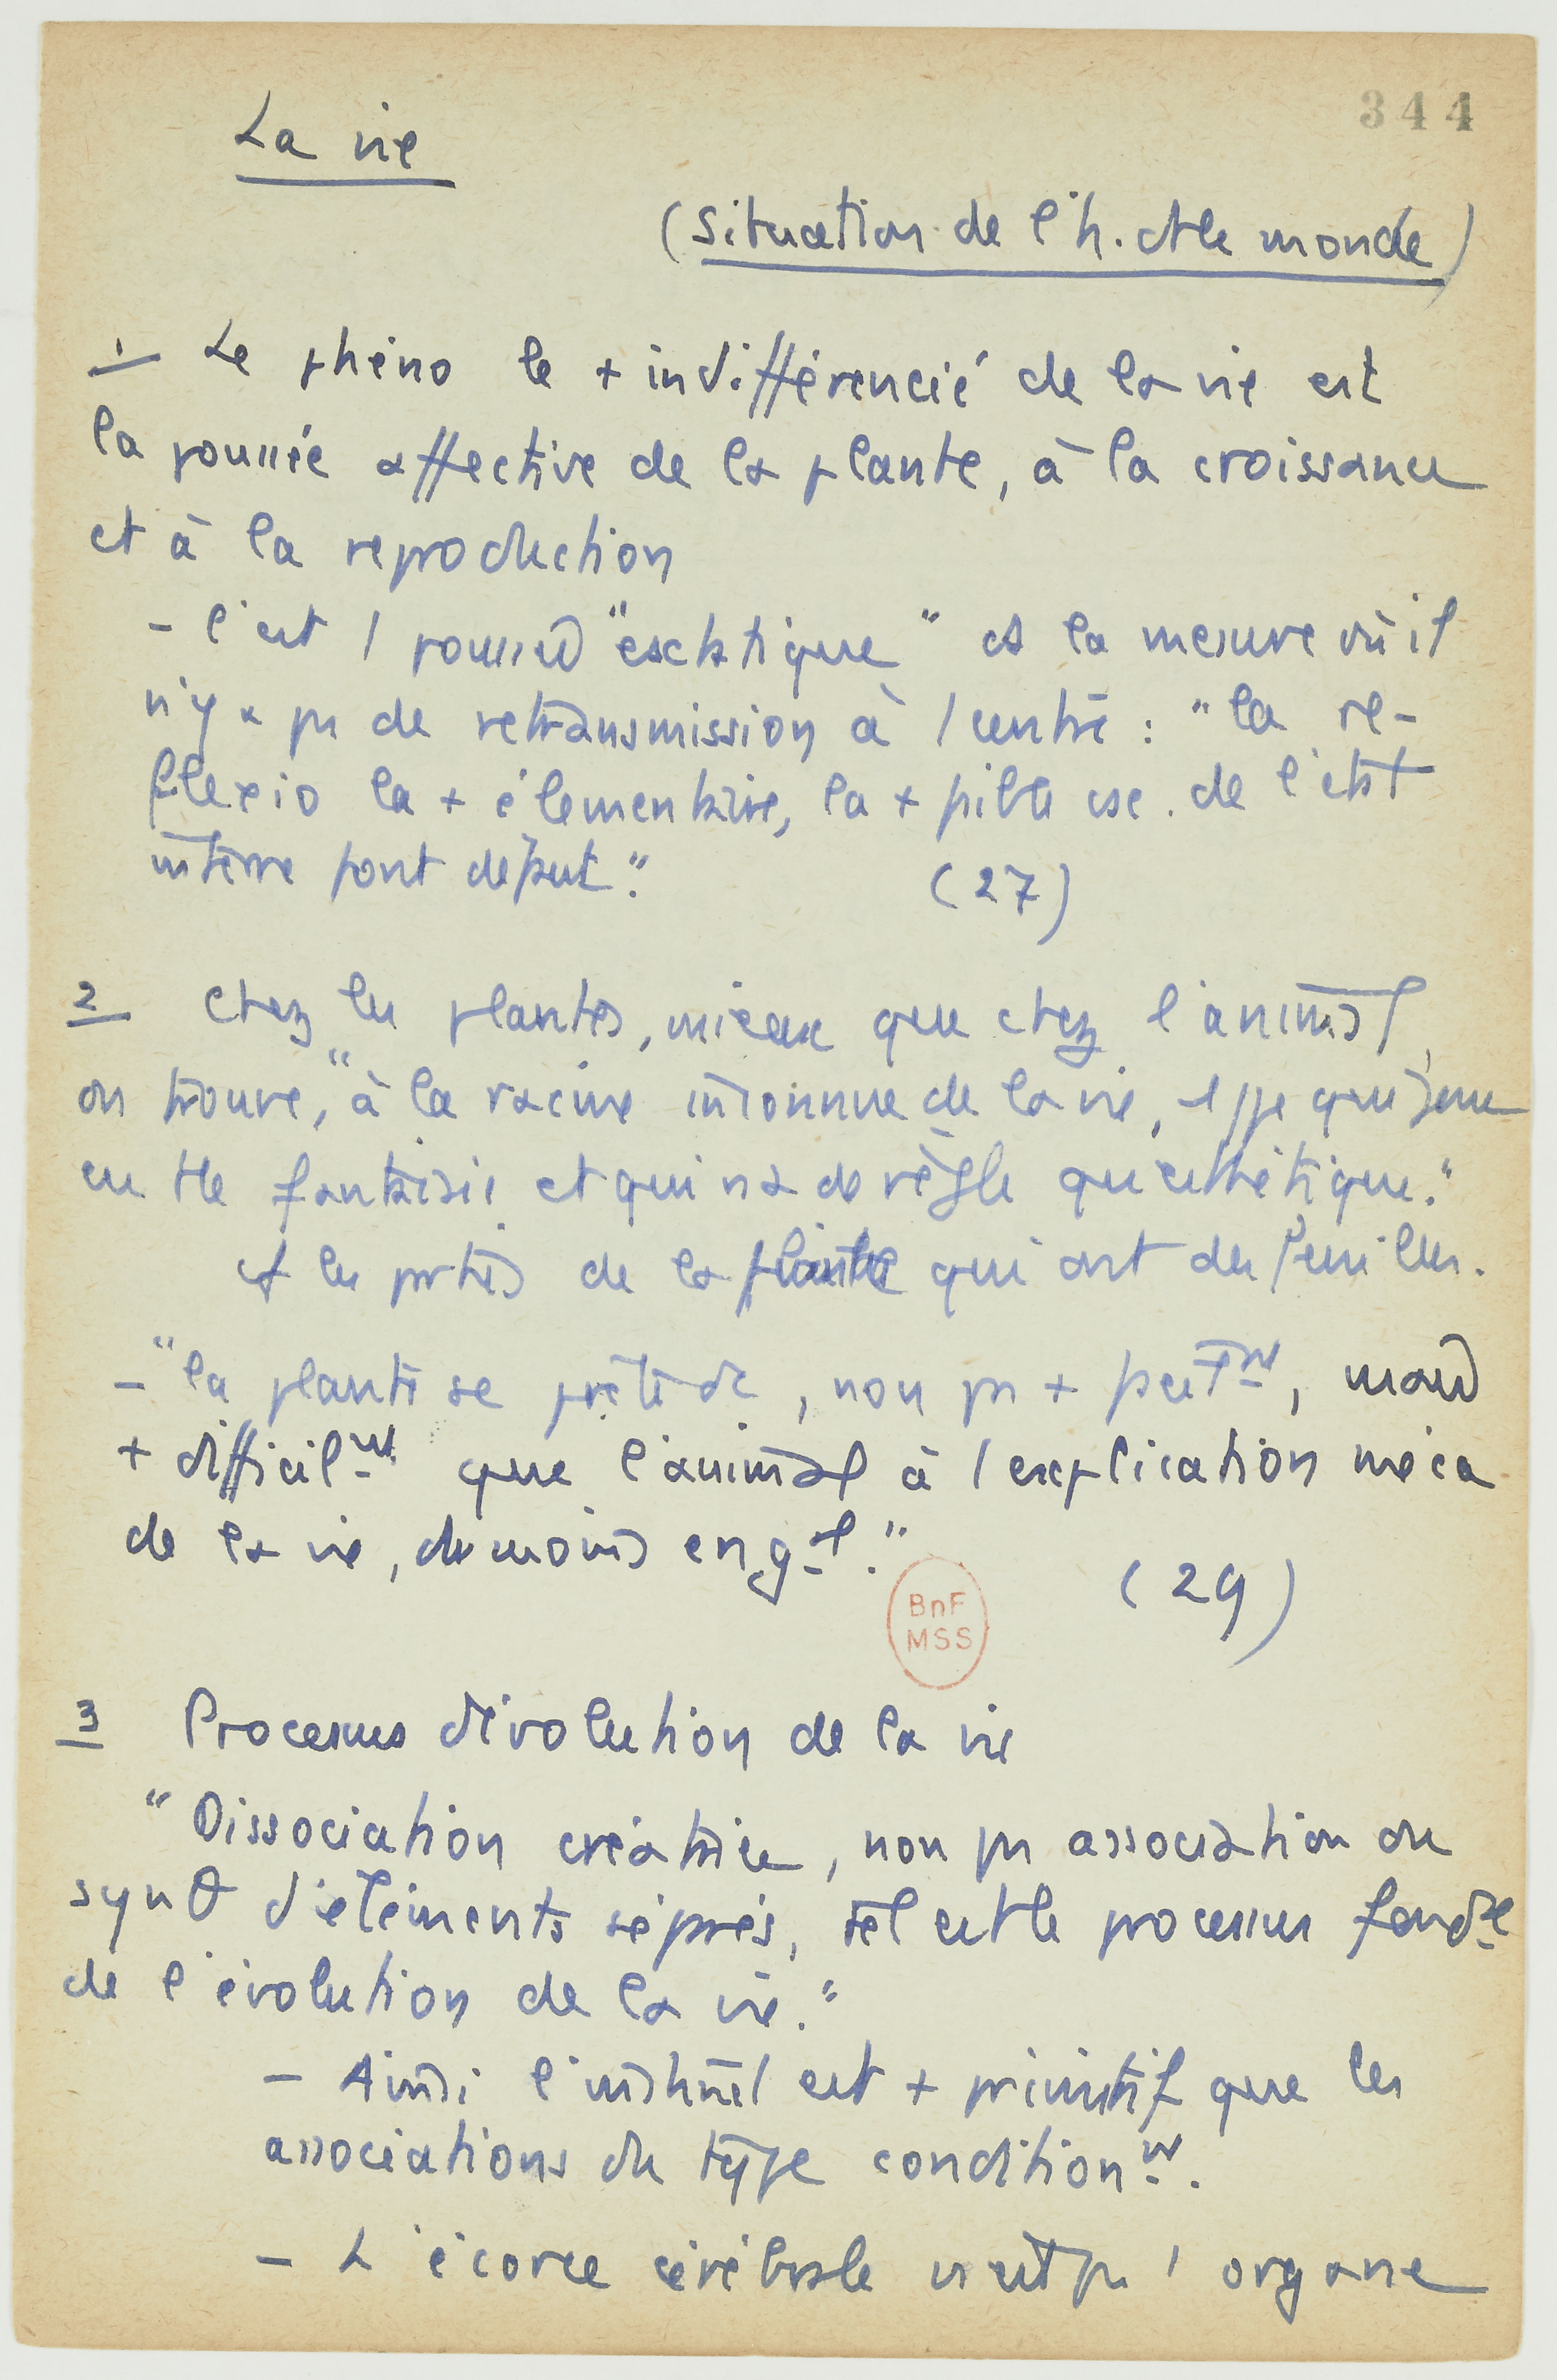 344
La vie
(Situation de l'h. ds le monde)
1 Le phéno le + indifférencié de la vie est
la poussée affective de la plante, à la croissance
et à la reproduction
- C'est 1 poussée "exstatique" ds la mesure où il
n'y a pas de retransmission à 1 centre : "la re-
flexio la + élémentaire, la + faible csc. de l'état
interne font défaut."
(27)
2 Chez les plantes, mieux que chez l'animal,
on trouve, "à la racine inconnue de la vie, 1 ppe qui joue
en tte fantaisie et qui n'a de règle qu'esthétique."
cf les parties de la plante qui ont des feuilles.
- "la plante se prête dc, non pas + fact^nt, mais
+ difficil^nt que l'animal à 1 explication méca
de la vie, du moins en g^al."
(29)
BnF
MSS
3 Processus d'évolution de la vie
"Dissociation créatrice, non pas association ou
synθ d'éléments séparés, tel est le processus fond^al
de l'évolution de la vie."
- Ainsi l'instinct est + primitif que les
associations du type condition^nt.
- L'écorce cérébrale n'est pas 1 organe